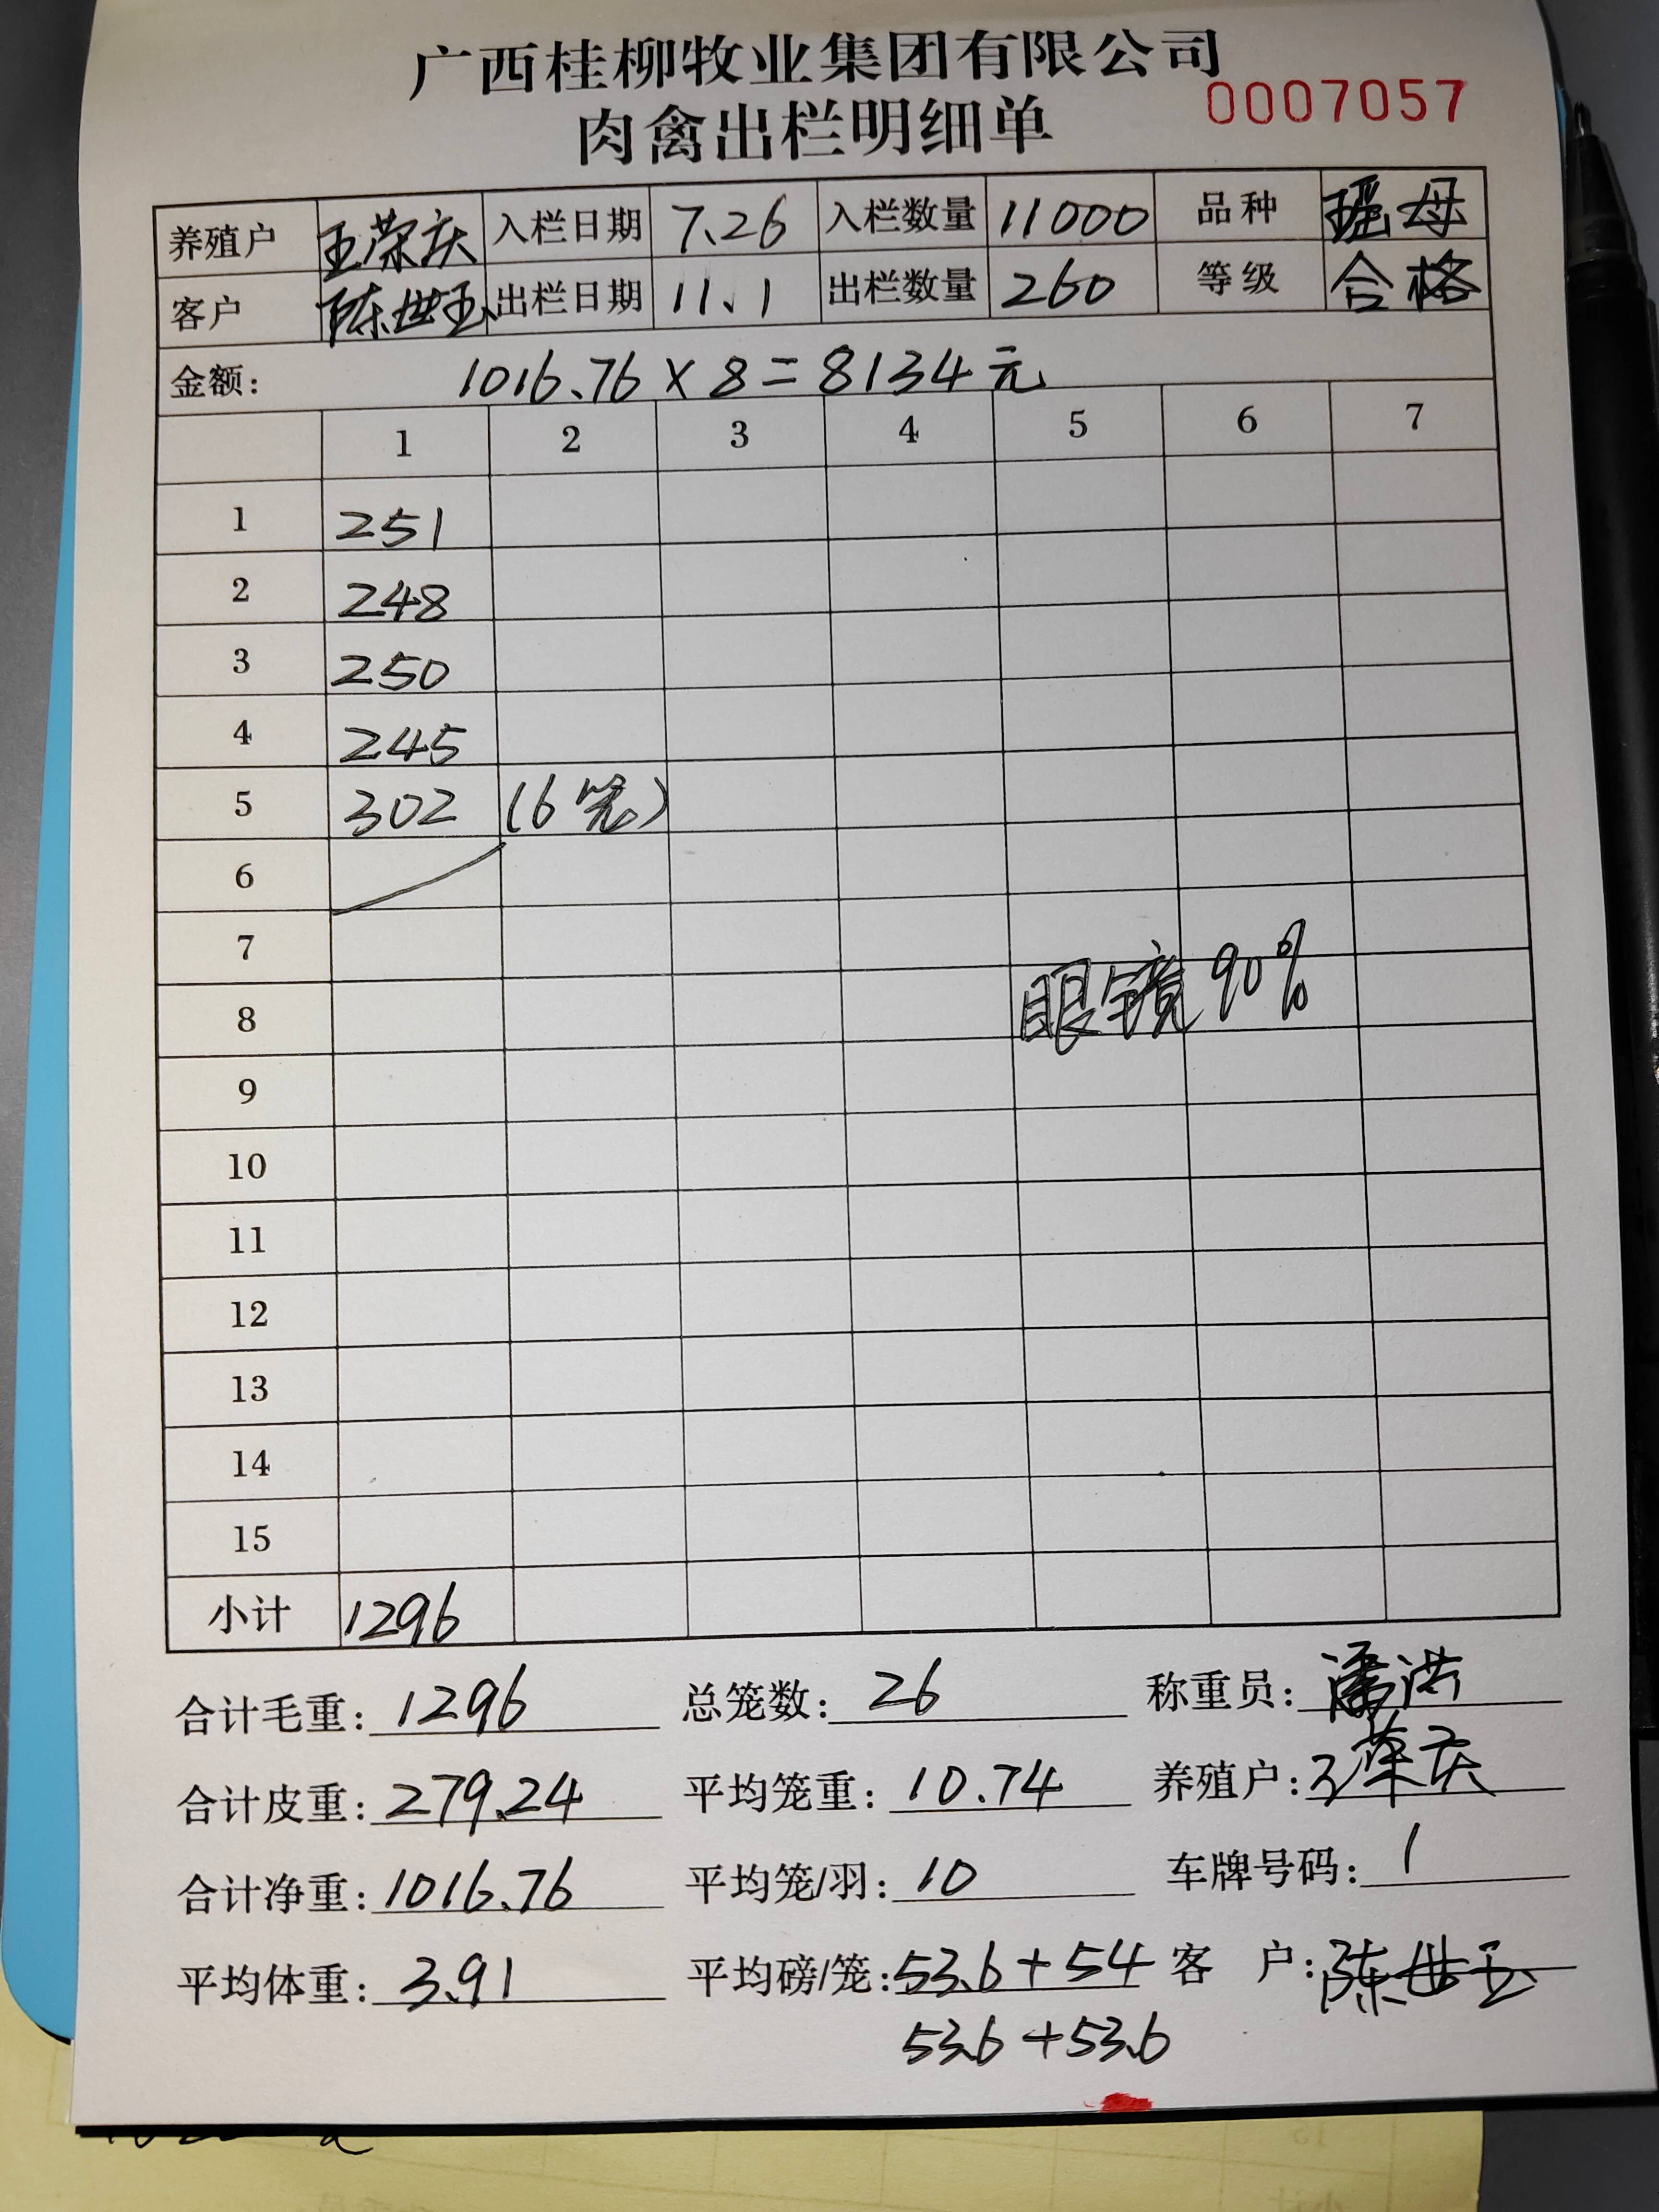 广西桂柳牧业集团有限公司
肉禽出栏明细单 0007057
养殖户 王荣庆 入栏日期 7.26 入栏数量 11000 品种 瑶母
客户 陈世玉 出栏日期 11.1 出栏数量 260 等级 合格
金额: 1016.76×8=8134元
1 2 3 4 5 6 7
1 251
2 248
3 250
4 245
5 302 (6笼)
6
7
8 眼镜90%
9
10
11
12
13
14
15
小计 1296
合计毛重: 1296 总笼数: 26 称重员: 潘洪
合计皮重: 279.24 平均笼重: 10.74 养殖户: 王荣庆
合计净重: 1016.76 平均笼/羽: 10 车牌号码: 1
平均体重: 3.91 平均磅/笼: 53.6+54 客 户: 陈世玉
53.6+53.6